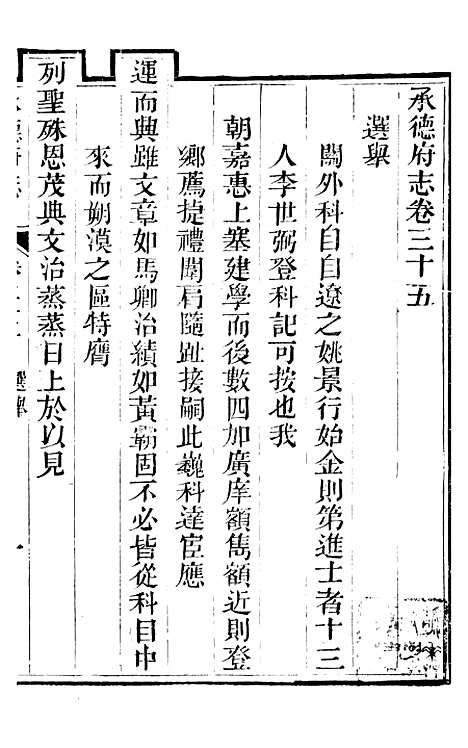 承德府志卷三十五
選舉
關外科目自遼之姚景行始金則第進士者十三
人李世弼登科記可按也我
朝嘉惠上塞建學而後數四加廣庠額雋額近則登
鄉薦捷禮闈肩隨趾接嗣此巍科達宦應
運而興雖文章如馬卿治績如黃霸固不必皆從科目中
來而朔漠之區特膺
列聖殊恩茂典文治蒸蒸日上於以見
選舉
一